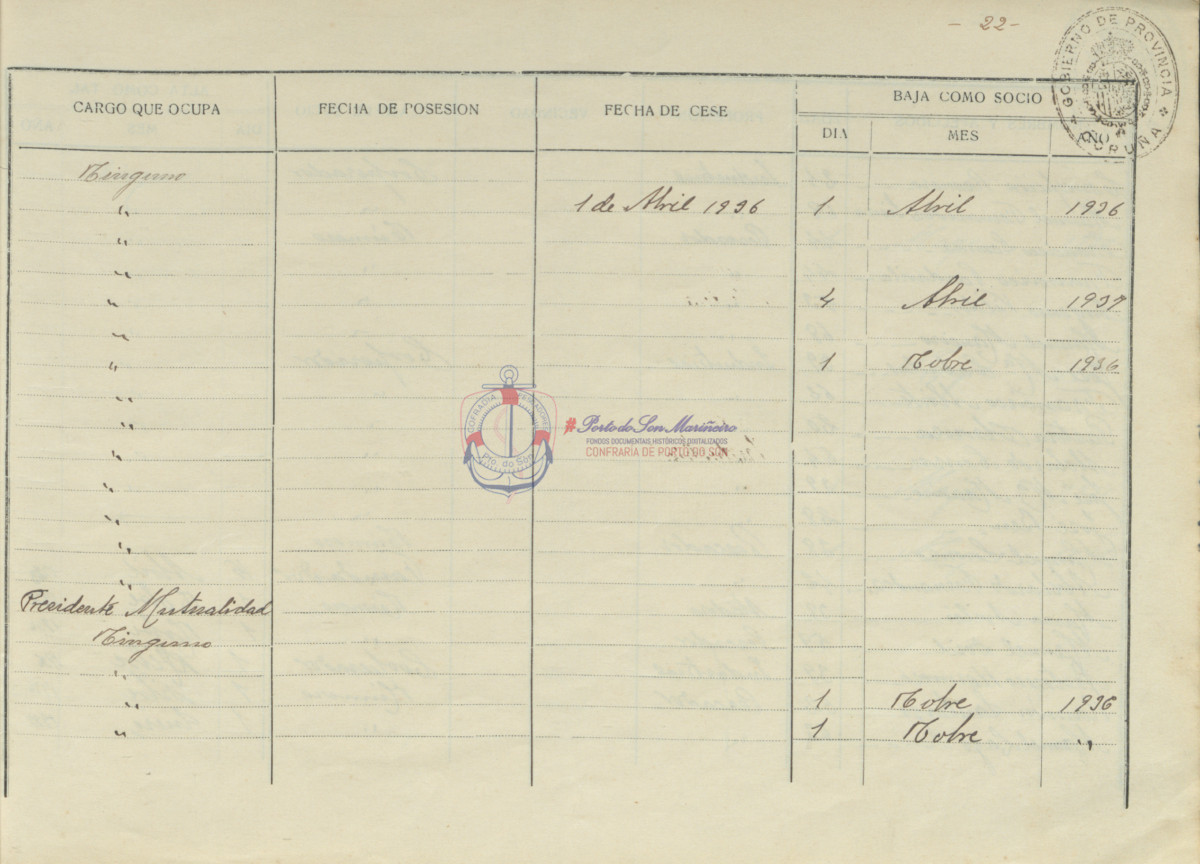 - 22-
GOBIERNO DE PROVINCIA
CORUÑA
CARGO QUE OCUPA FECHA DE POSESION FECHA DE CESE BAJA COMO SOCIO
DIA MES AÑO
Ninguno
" 1 de Abril 1936 1 Abril 1936
"
"
" 4 Abril 1937
"
" 1 Nobre 1936
"
"
"
"
"
"
"
Presidente Mutualidad
Ninguno
"
" 1 Nobre 1936
" 1 Nobre "
COFRADIA PESCADORES
Pto. do Son
#Porto do Son Mariñeiro
FONDOS DOCUMENTAIS HISTÓRICOS DIXITALIZADOS
CONFRARIA DE PORTO DO SON